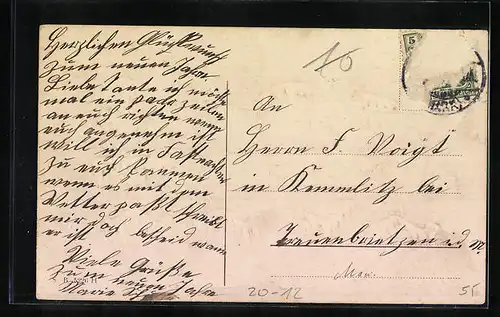 Herzlichen Glückwunsch
zum neuen Jahre
Liebe Tante ich möchte
mal ein paar zeilen
an euch richten wenn
euch angenehm ist
will ich in Fastnachten
zu euch kommen
wenn es mit dem
Vetter paßt schreibt
mir doch bescheid wann
er ist
Viele Grüße
zum neuen Jahre
Marie
10
5
An
Herrn F. Voigt
in Kemnlitz bei
Treuenbrietzen i. d. M.
20-12